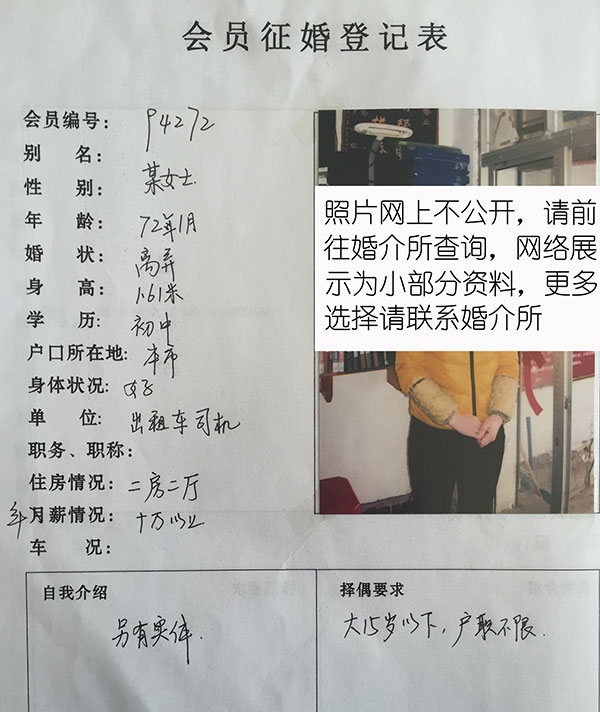 会员征婚登记表
会员编号: 94272
别 名: 某女士
性 别:
年 龄: 72年1月
婚 状: 离异
身 高: 1.61米
学 历: 初中
户口所在地: 本市
身体状况: 好
单 位: 出租车司机
职务、职称:
住房情况: 二房二厅
年月薪情况: 十万以上
车 况:
照片网上不公开，请前
往婚介所查询，网络展
示为小部分资料，更多
选择请联系婚介所
自我介绍
另有实体.
择偶要求
大15岁以下，户职不限.